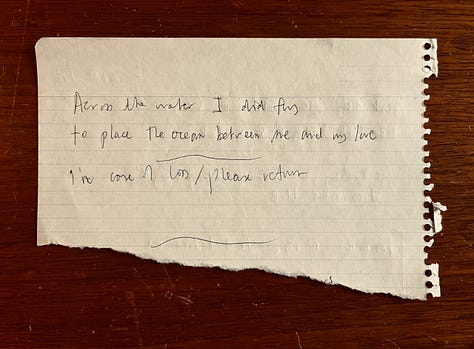 Across the water I did fly
to place the ocean between me and my love
in case of loss / please return